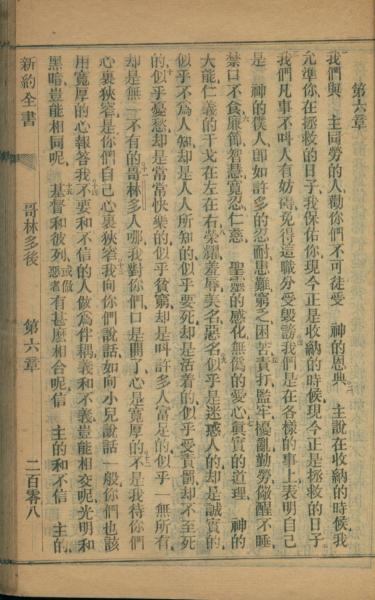 第六章
我們與　主同勞的人勸你們不可徒受　神的恩典　主說在收納的時候我
允準你在拯救的日子我保佑你現今正是收納的時候現今正是拯救的日子
我們凡事不叫人有妨礙免得這職分受毀謗我們是在各樣的事上表明自己
是　神的僕人即如許多的忍耐患難窮乏困苦責打監牢擾亂勤勞儆醒不睡
禁口不食廉節智慧寬忍仁慈　聖靈的感化無偽的愛心眞實的道理　神的
大能仁義的干戈在左在右榮耀羞辱美名惡名似乎是迷惑人的却是誠實的
似乎不爲人知却是人人所知的似乎要死却是活着的似乎受責罰却不至死
的似乎憂愁却是常常快樂的似乎貧窮却是叫許多人富足的似乎一無所有
却是無一不有的哥林多人哪我對你們口是開了心是寬厚的不是我待你們
心裏狹窄是你們自己心裏狹窄我向你們說話如向小兒說話一般你們也該
用寬厚的心報答我不要和不信的人做爲伴耦義和不義豈能相交呢光明和
黑暗豈能相同呢　基督和彼列或做惡者有甚麼相合呢信　主的和不信　主的
新約全書　哥林多後　第六章　二百零八